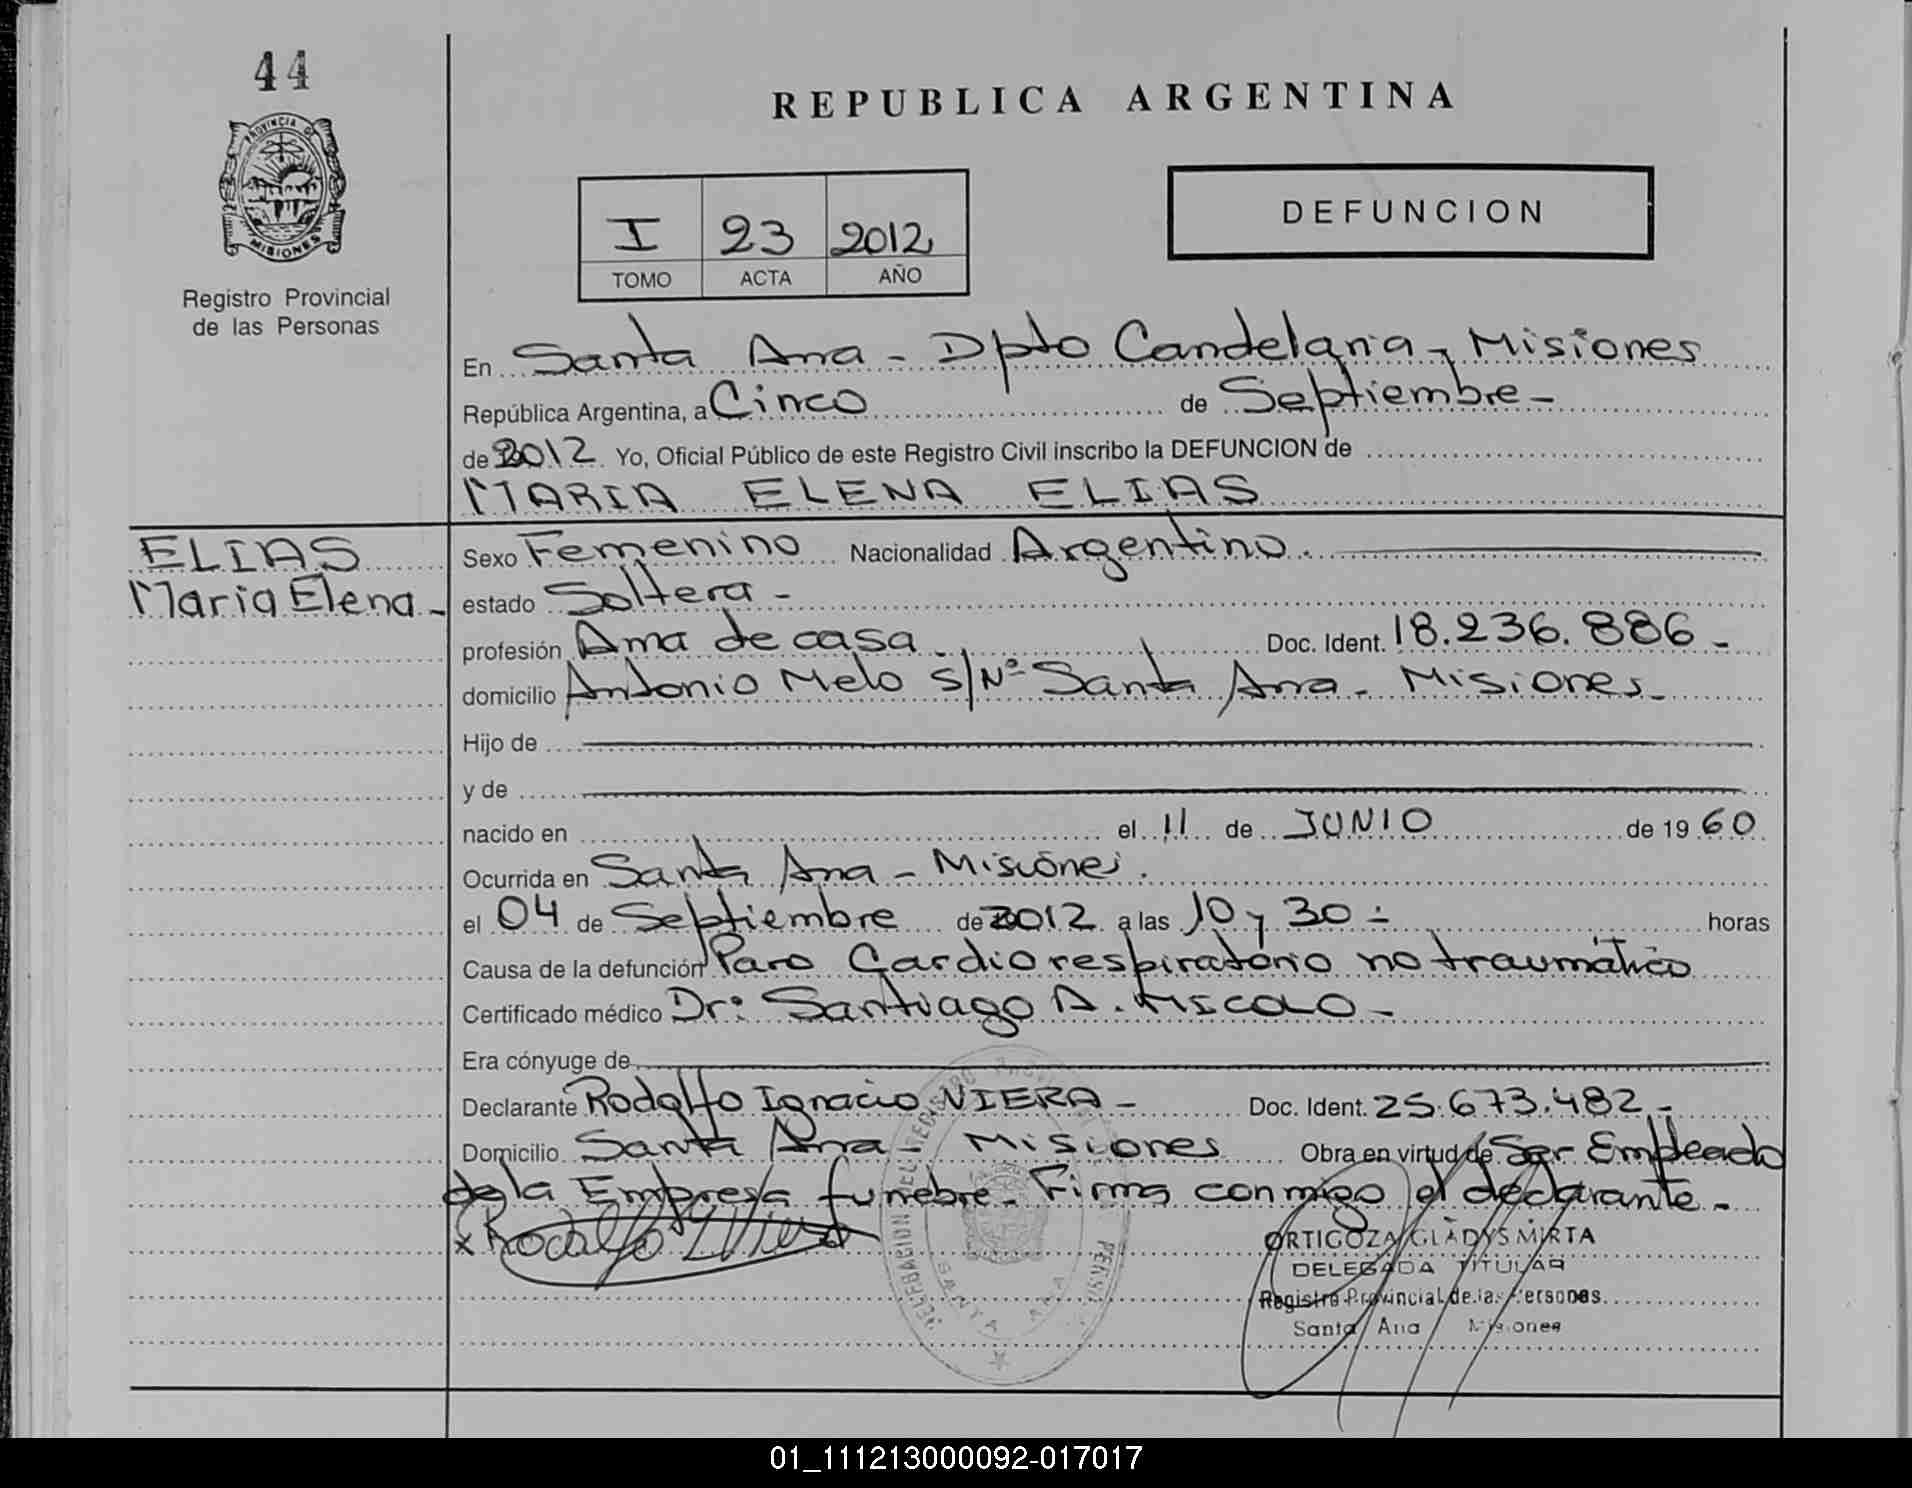 44
PROVINCIA DE
MISIONES
Registro Provincial
de las Personas
REPUBLICA ARGENTINA
I 23 2012
TOMO ACTA AÑO
DEFUNCION
En Santa Ana - Dpto Candelaria, Misiones
República Argentina, a Cinco de Septiembre -
de 2012 Yo, Oficial Público de este Registro Civil inscribo la DEFUNCION de
MARIA ELENA ELIAS
ELIAS
Maria Elena -
Sexo Femenino Nacionalidad Argentino.
estado Soltera -
profesión Ama de casa. Doc. Ident. 18.236.886 -
domicilio Antonio Melo S/Nº Santa Ana - Misiones -
Hijo de
y de
nacido en el 11 de JUNIO de 1960
Ocurrida en Santa Ana - Misiones.
el 04 de Septiembre de 2012 a las 10 y 30 - horas
Causa de la defunción Paro Cardiorespiratorio no traumático
Certificado médico Dr: Santiago A.
Era cónyuge de
Declarante Rodolfo Ignacio VIERA - Doc. Ident. 25.673.482 -
Domicilio Santa Ana - Misiones Obra en virtud de Ser Empleado
de la Empresa funebre - Firma conmigo el declarante -
x Rodolfo Viera
ORTIGOZA GLADYS MIRTA
DELEGADA TITULAR
Registro Provincial de las Personas
Santa Ana Misiones
DELEGACION DEL REGISTRO
SANTA ANA
01_111213000092-017017